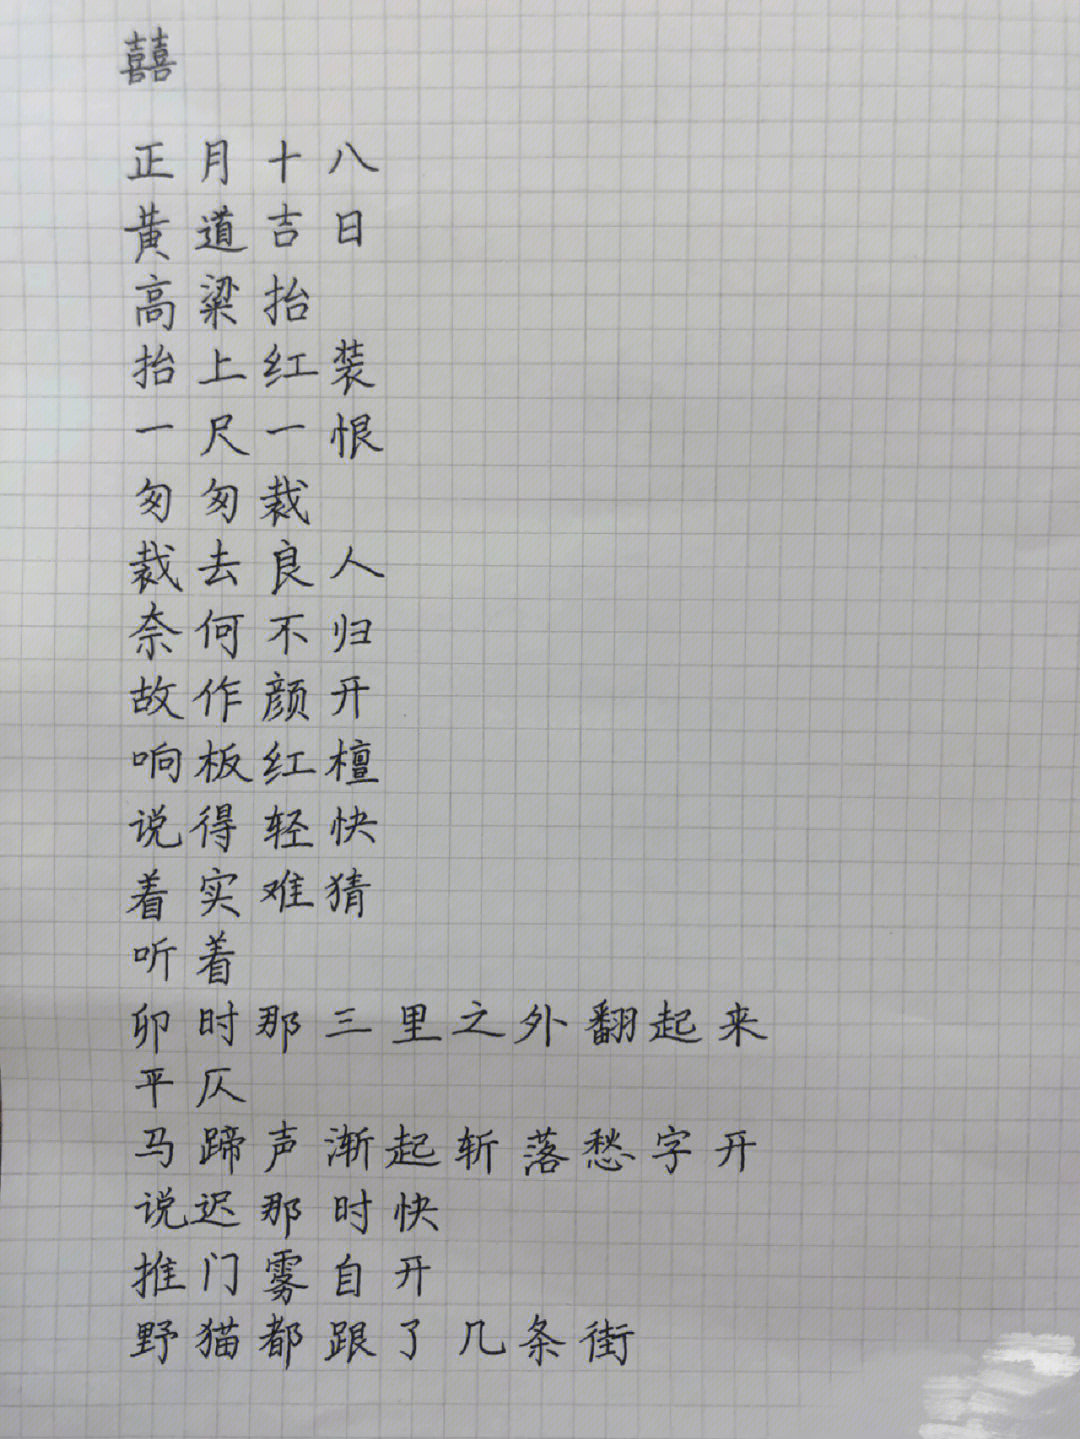 囍
正月十八
黄道吉日
高粱抬
抬上红装
一尺一恨
匆匆裁
裁去良人
奈何不归
故作颜开
响板红檀
说得轻快
着实难猜
听着
卯时那三里之外翻起来
平仄
马蹄声渐起斩落愁字开
说迟那时快
推门雾自开
野猫都跟了几条街